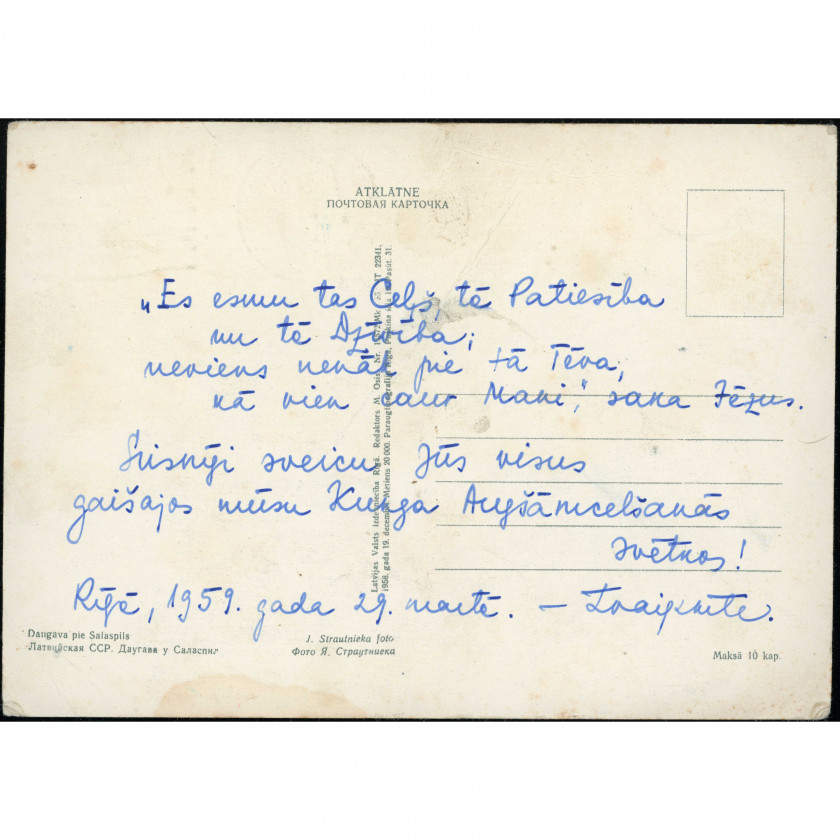 ATKLĀTNE
ПОЧТОВАЯ КАРТОЧКА
„Es esmu tas Ceļš, tā Patiesība
un tā Dzīvība;
neviens nenāk pie tā Tēva,
kā vien caur Mani,” saka Jēzus.
Sirsnīgi sveicu Jūs visus
gaišajos mūsu Kunga Augšāmcelšanās
svētkos!
Rīgā, 1959. gada 29. martā. –
Latvijas Valsts izdevniecība Rīgā. Redaktors M. Osis. Nr. JT 22341.
1958. gada 19. decembrī. Metiens 20 000. Paraugtipogrāfija Rīgā, Pasūt. 31.
Daugava pie Salaspils
Латвийская ССР. Даугава у Саласпил
J. Strautnieka foto
Фото Я. Страутниека
Maksā 10 kap.